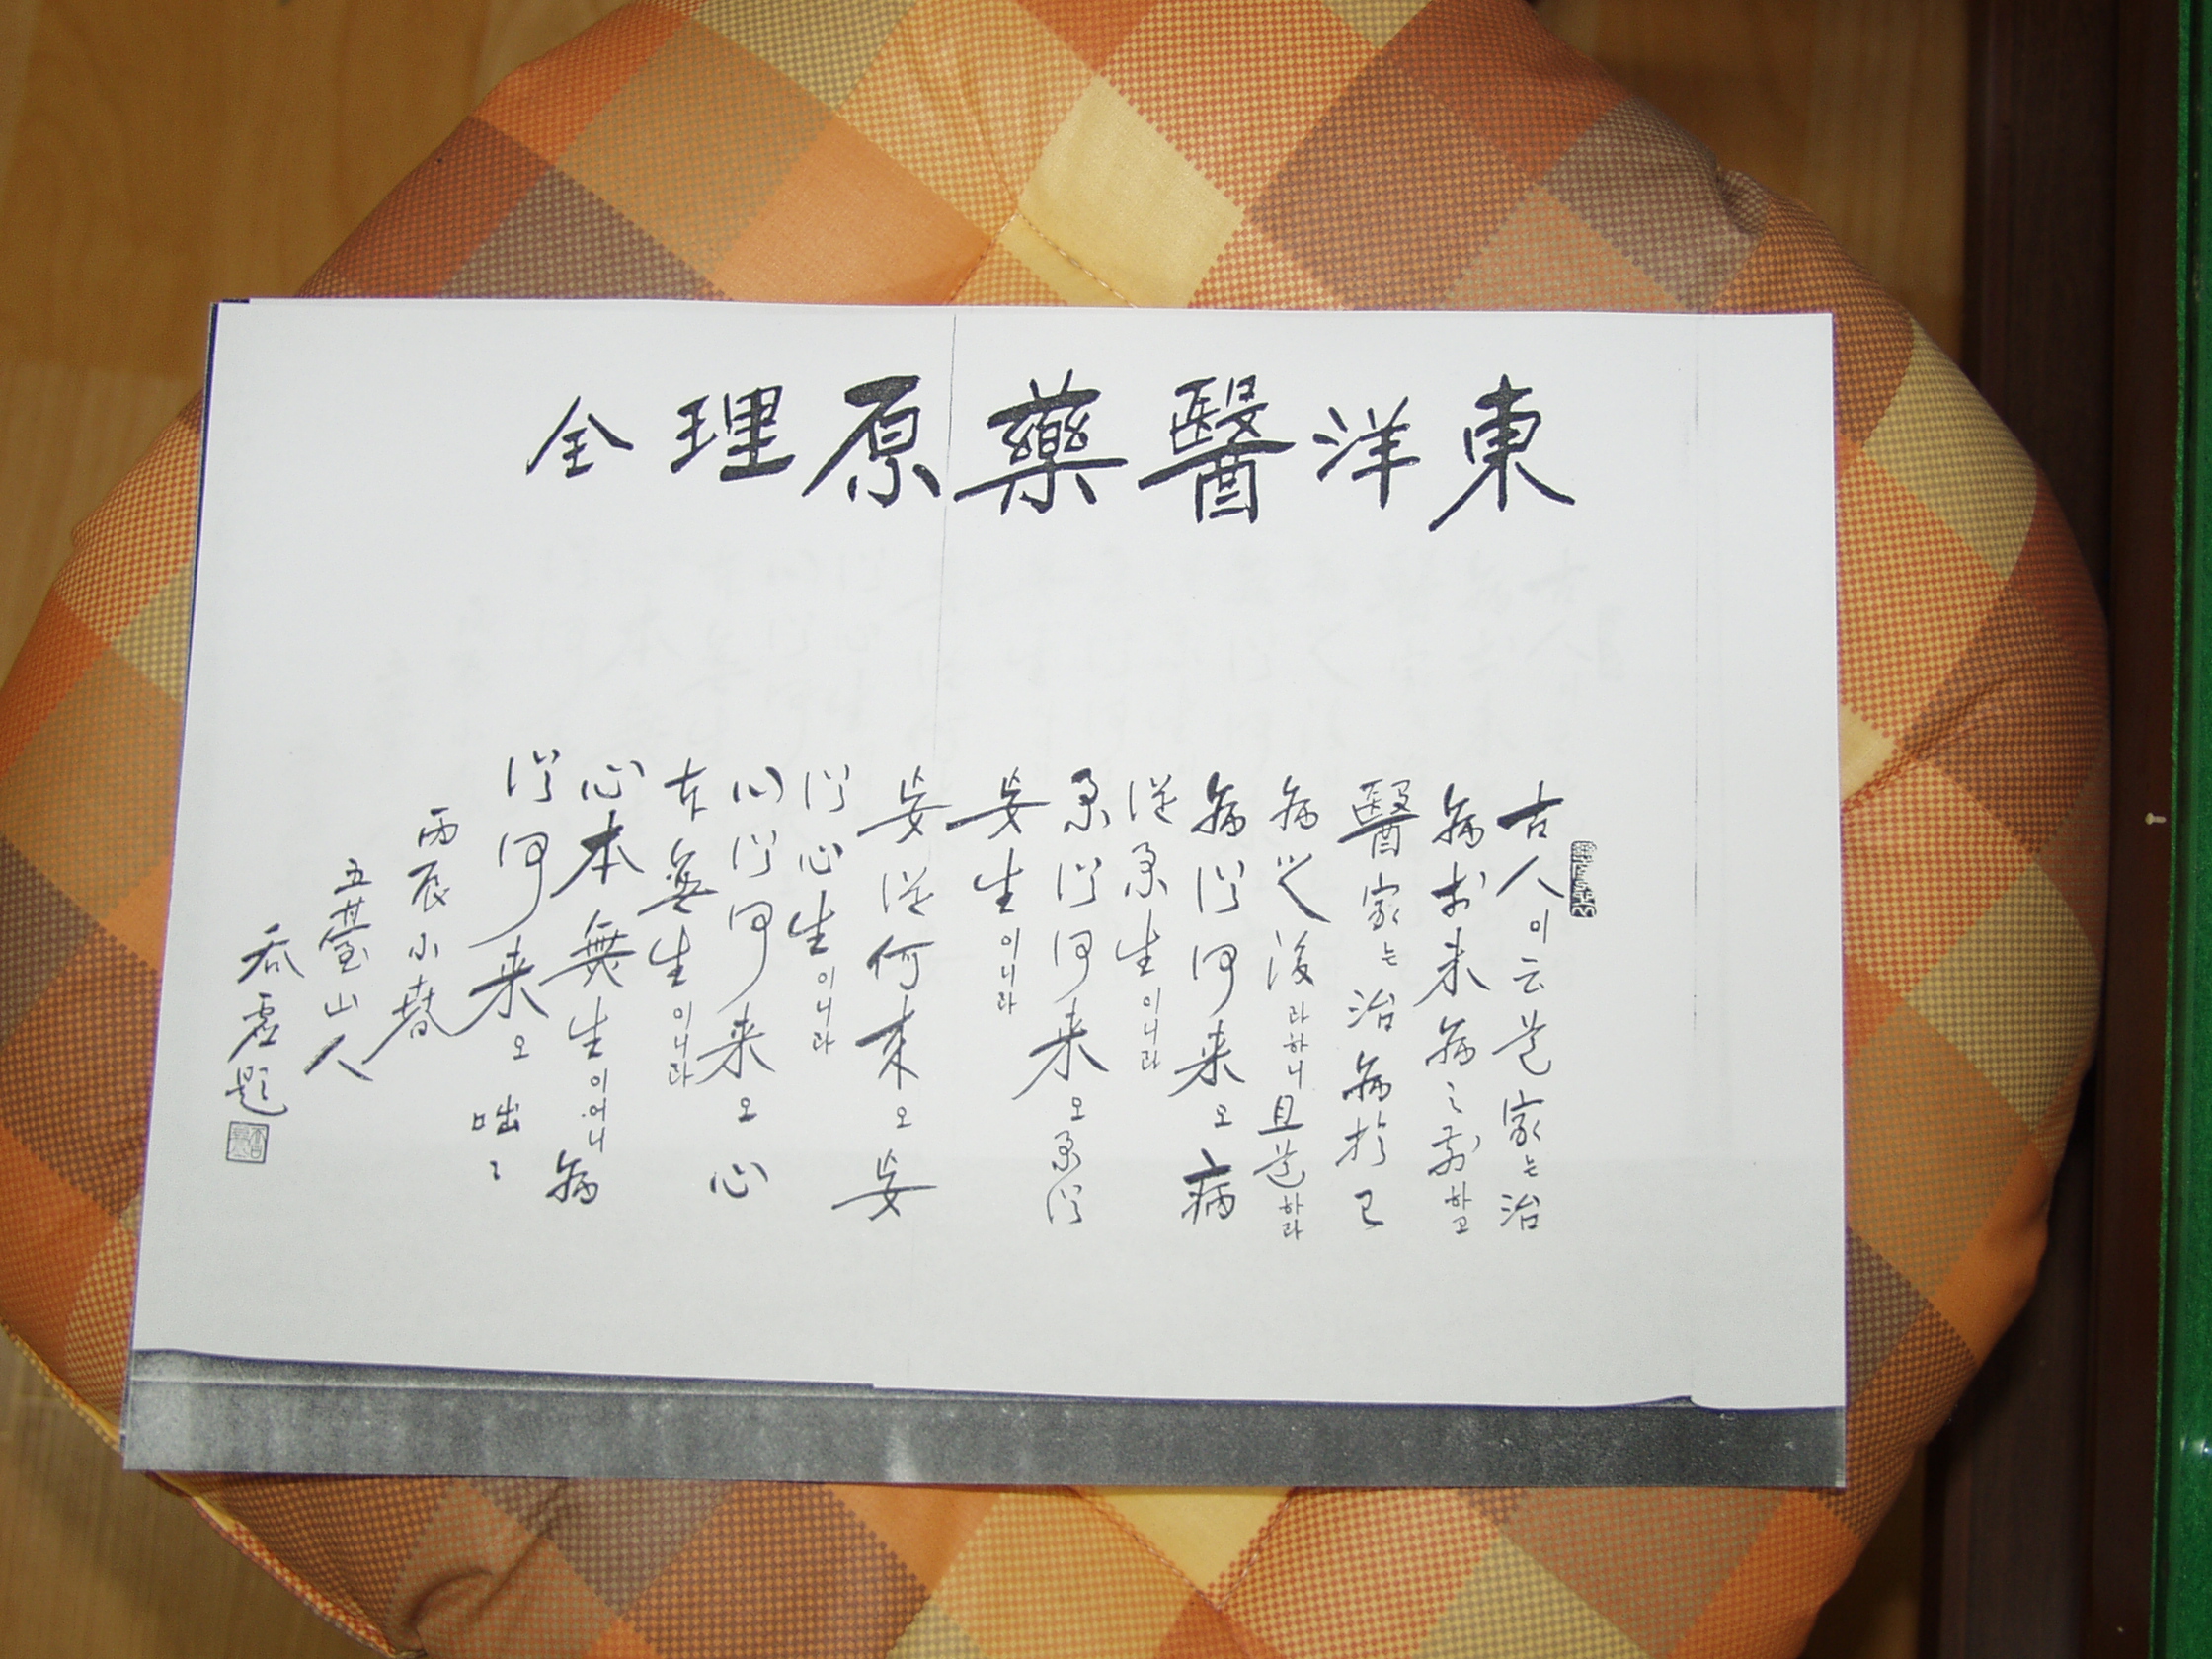 東洋醫藥原理全
古人이云道家는治
病於未病之前하고
醫家는治病於已
病之後라하니且道하라
病從何来오病
從業生이니라
業從何来오業從
妄生이니라
妄從何来오妄
從心生이니라
心從何来오心
本無生이니라
心本無生이어니病
從何来오咄〻
丙辰小春
五臺山人
呑虛題